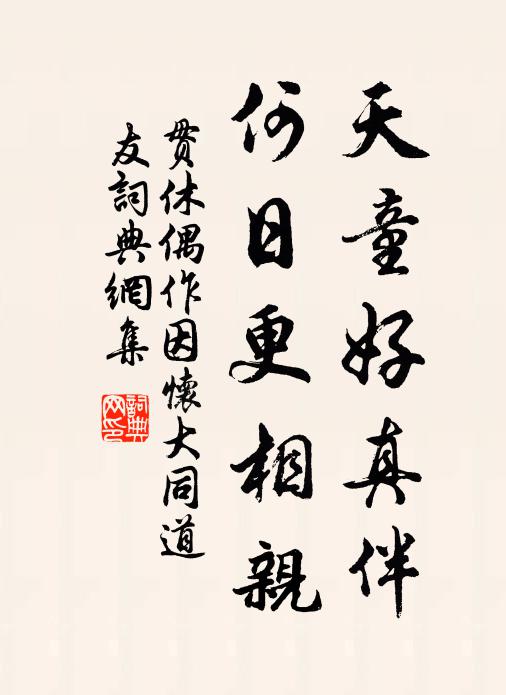 天童好真伴
何日更相親
貫休偶作因懷大同道
友詞典網集
詞典
网印